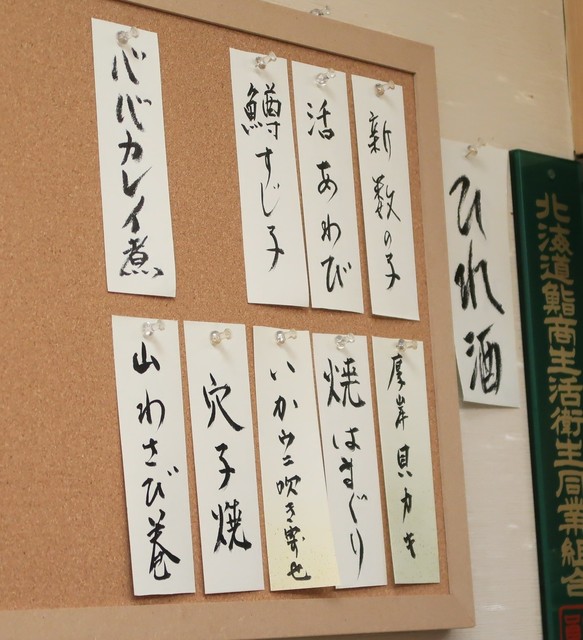 ひれ酒
新数の子
活あわび
鱒すじ子
ババカレイ煮
厚岸貝カキ
焼はまぐり
いかウニ吹き寄せ
穴子焼
山わさび巻
北海道鮨商生活衛生同業組合